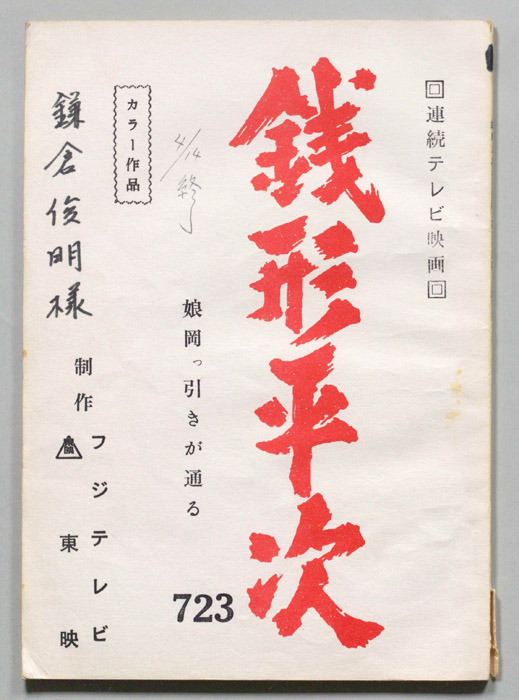 回連続テレビ映画回
銭形平次
娘岡っ引きが通る
723
4/14 終了
カラー作品
鎌倉俊明様
制作
フジテレビ
東映